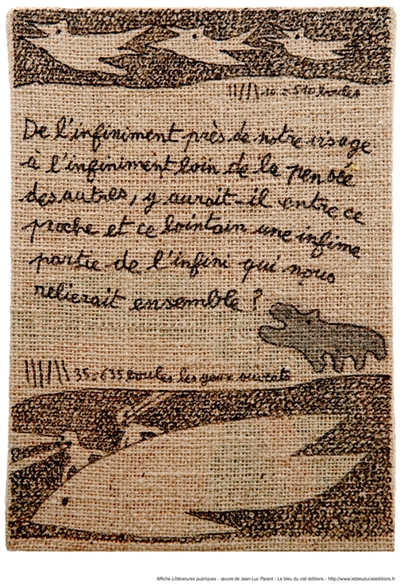 ||||| 10 = 510 boules
De l'infiniment près de notre visage
à l'infiniment loin de la pensée
des autres, y aurait-il entre ce
proche et ce lointain une infime
partie de l'infini qui nous
relierait ensemble ?
35 = 635 boules les yeux ouverts
Affiche Littératures publiques - œuvre de Jean-Luc Parant - Le bleu du ciel éditions - http://www.lebleuducieleditions.fr